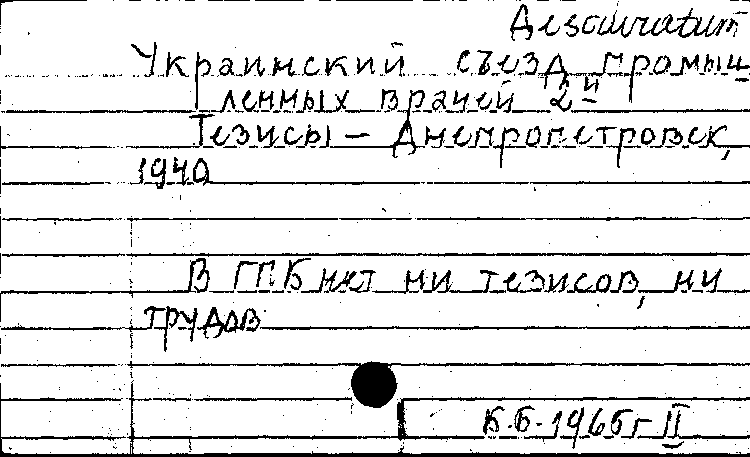 Desideratum
Украинский съезд промыш
ленных врачей 2й
Тезисы – Днепропетровск,
1940
В ГПБ нет ни тезисов, ни
трудов
Б.Б. 1965 г II